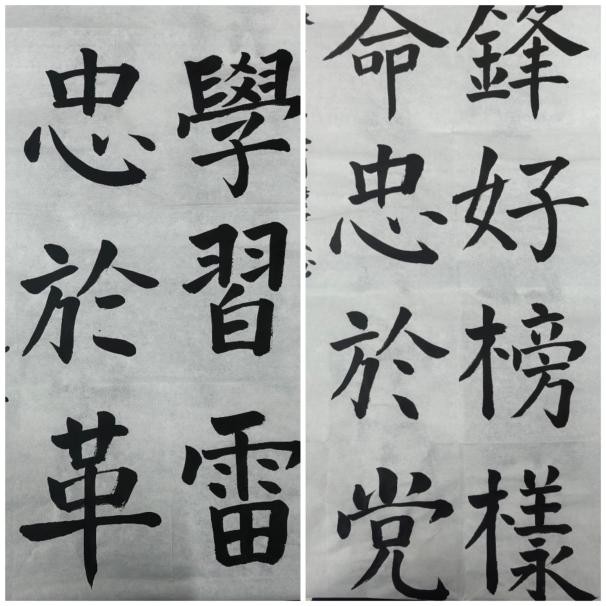 學習雷
忠於革
鋒好榜樣
命忠於党